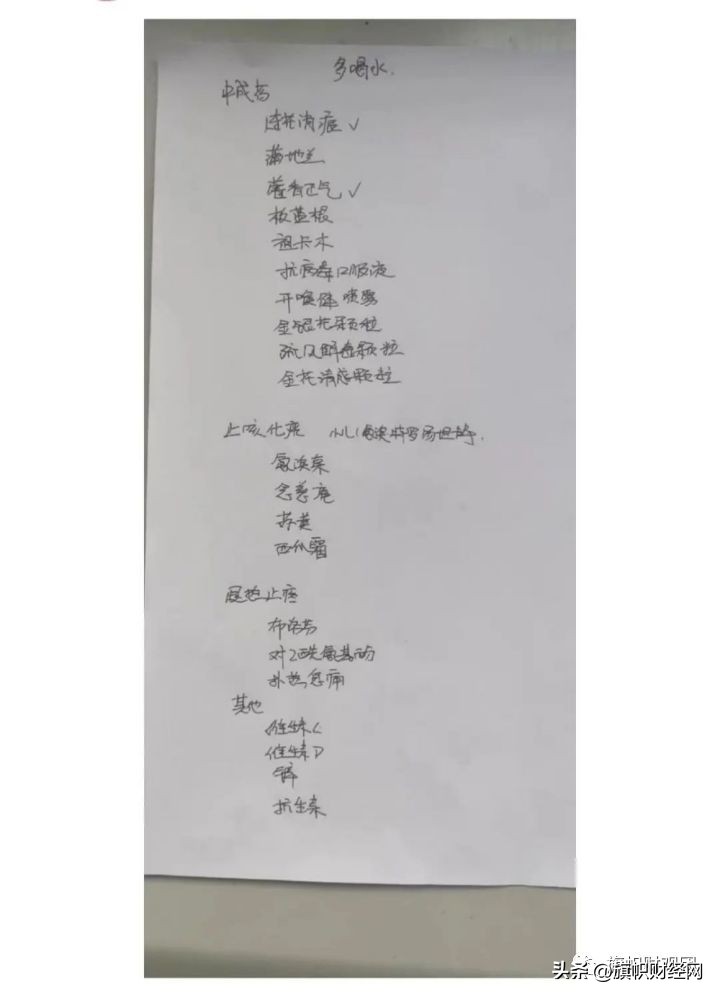 多喝水.
中成药
连花清瘟 ✓
蒲地兰
藿香正气 ✓
板蓝根
祖卡木
抗病毒口服液
开喉健喷雾
金银花颗粒
疏风解毒颗粒
金花清感颗粒
止咳化痰 小儿
氨溴索
念慈庵
苏黄
西瓜霜
退热止疼
布洛芬
对乙酰氨基酚
扑热息痛
其他
维生素C
维生素D
锌
抗生素
旗帜财观网
头条@旗帜财经网